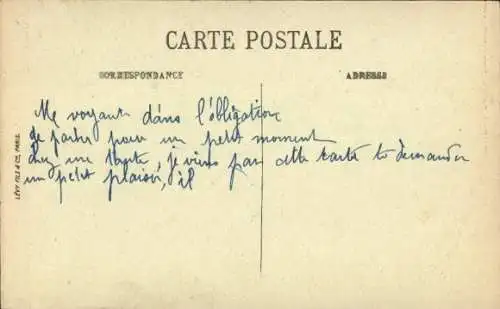 CARTE POSTALE
CORRESPONDANCY
ADRESSE
Me voyant dans l'obligation
de partir pour un petit moment
chez une tante, je viens par cette carte te demander
un petit plaisir, il
LÉVY FILS & Cie, PARIS